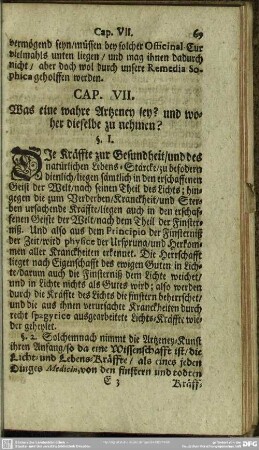 Cap. VII. 69
vermögend seyn/müssen bey solcher Officinal-Cur
vielmahls unten liegen/ und mag ihnen dadurch
nicht/ aber doch wol durch unsere Remedia So-
phica geholffen werden.
CAP. VII.
Was eine wahre Artzeney sey? und wo-
her dieselbe zu nehmen?
§. I.
DIe Kräffte zur Gesundheit/und des
natürlichen Lebens-Stärcke/zu befordern
dienlich/liegen sämtlich in den erschaffenen
Geist der Welt/nach seinen Theil des Lichts; hin-
gegen die zum Verderben/Kranckheit/und Ster-
ben ursachende Kräffte/liegen auch in den erschaf-
fenen Geiste der Welt/nach dem Theil der Finster-
niß. Und also aus dem Principio der Finsterniß
der Zeit/wird physice der Ursprung/und Herkom-
men aller Kranckheiten erkennet. Die Herrschafft
lieget nach Eigenschafft des ewigen Guten in Lich-
te/darum auch die Finsterniß dem Lichte weichet/
und in Lichte nichts als Gutes wird; also werden
durch die Kräffte des Lichts die finstern beherrschet/
und die aus ihnen verursachte Kranckheiten durch
recht spagyrice ausgearbeitete Lichts-Kräffte wie-
der geheylet.
§. 2. Solchemnach nimmt die Artzeney-Kunst
ihren Anfang/so da eine Wissenschafft ist/die
Licht- und Lebens-Kräffte/ als eines jeden
Dinges Medicin,von den finstern und todten
E 3 Kräff-